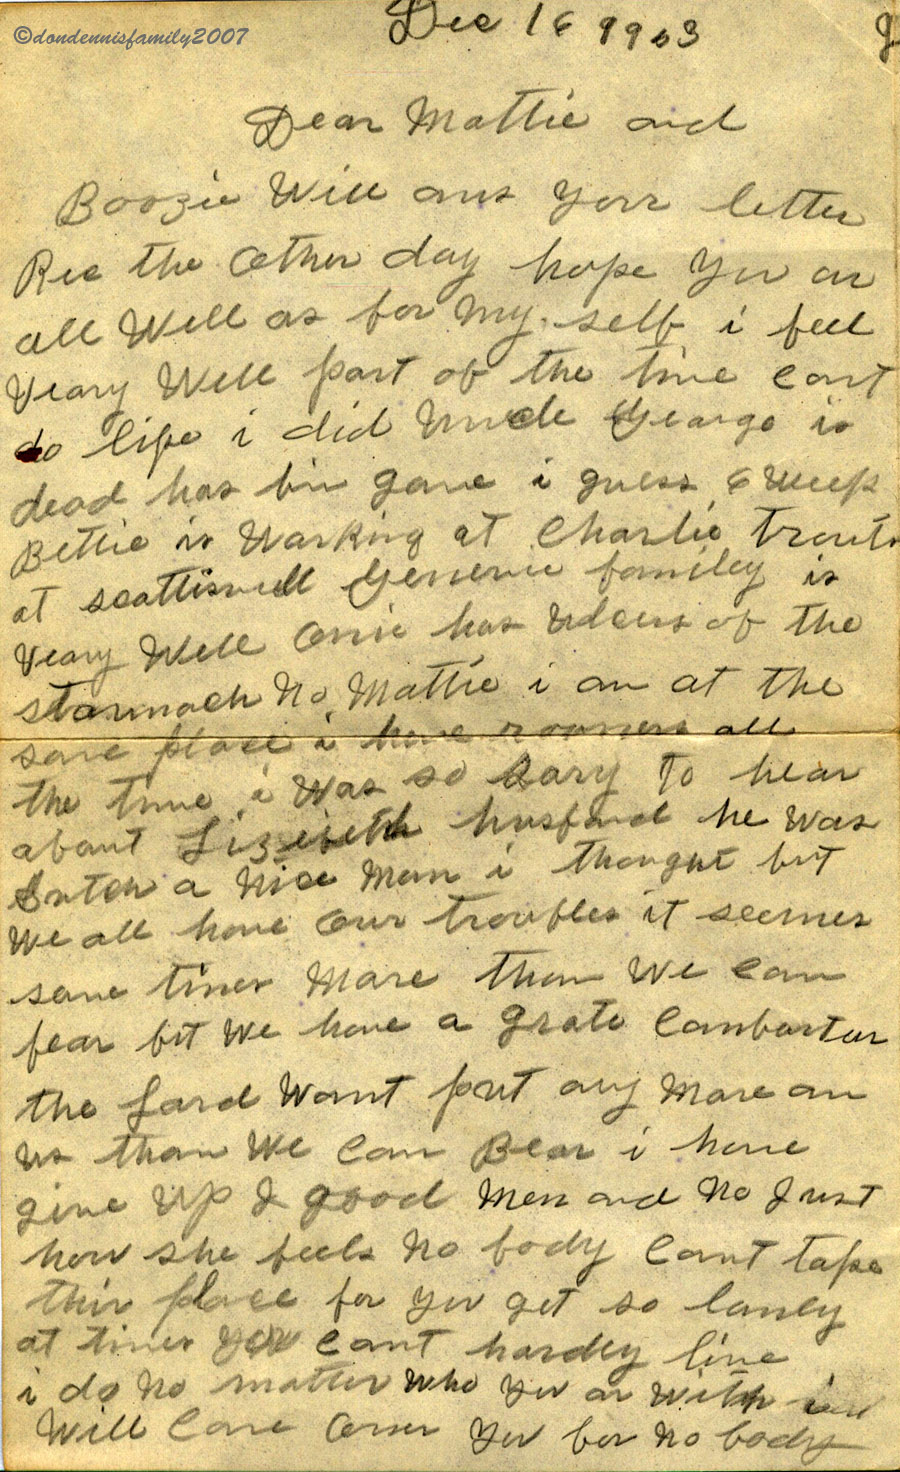 ©dondennisfamily2007
Dec 16 1903
Dear Mattie and
Boozie Will ans Your letter
Rec the other day hope You ar
all Well as for My self i feel
Veary Well part of the time Cant
do like i did Uncle Gearge is
dead has bin gone i guess 6 Week
Bettie is Warking at Charlie trouts
at scottisvill family is
Veary Well has Ulcers of the
stommach No Mattie i am at the
same place i have roomers all
the time i Was so Sary To hear
about husband he Was
Sutch a Nice Man i thought but
We all have our troubles it seemes
some times More than We Can
bear but We have a grate Cambartur
the Lard Wont put any More an
us than We Can Bear i have
give Up 2 good Men and No Just
how she feels No body Cant take
thir place for you get so lanly
at times you Cant hardly live
i do No matter Who You ar With
Will Come over You for No body